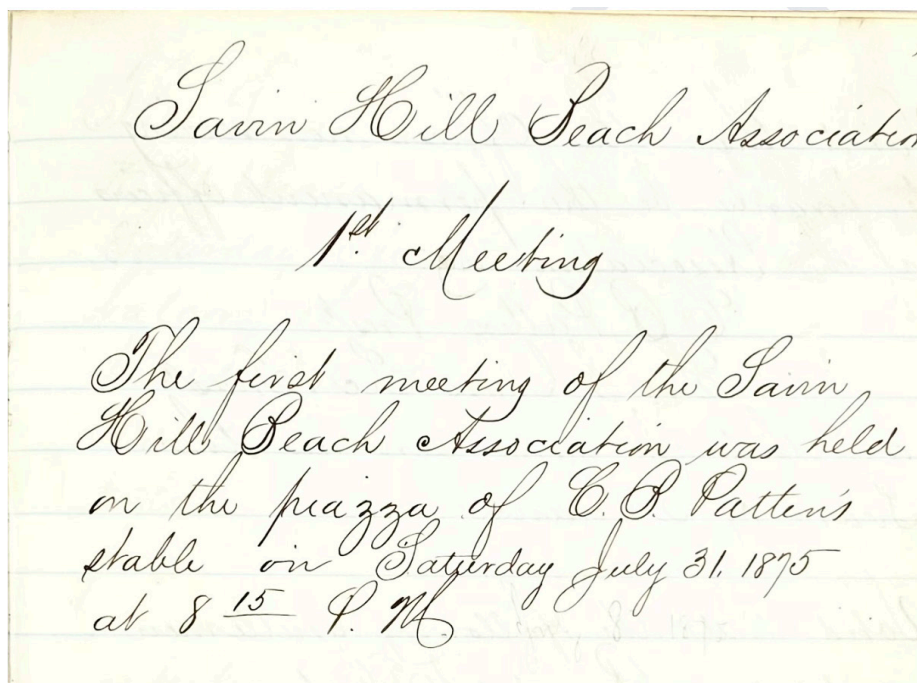 Savin Hill Beach Association
1st. Meeting
The first meeting of the Savin
Hill Beach Association was held
on the piazza of C. P. Patten's
stable on Saturday July 31. 1875
at 8 15 P. M